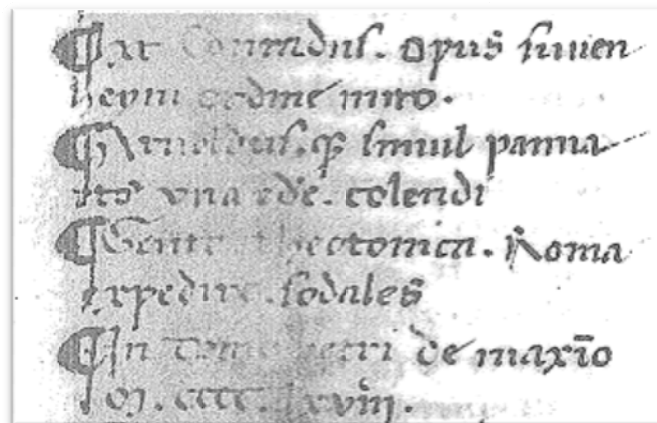 ¶ Conradus. opus suuen
heym ordine miro.
¶ Arnoldus.qꝫ simul panna
rts vna ede. colendi
¶ Gente theotonica. Roma
expediere. sodales
¶ In domo petri de maxīo
M. cccc. lxviij.